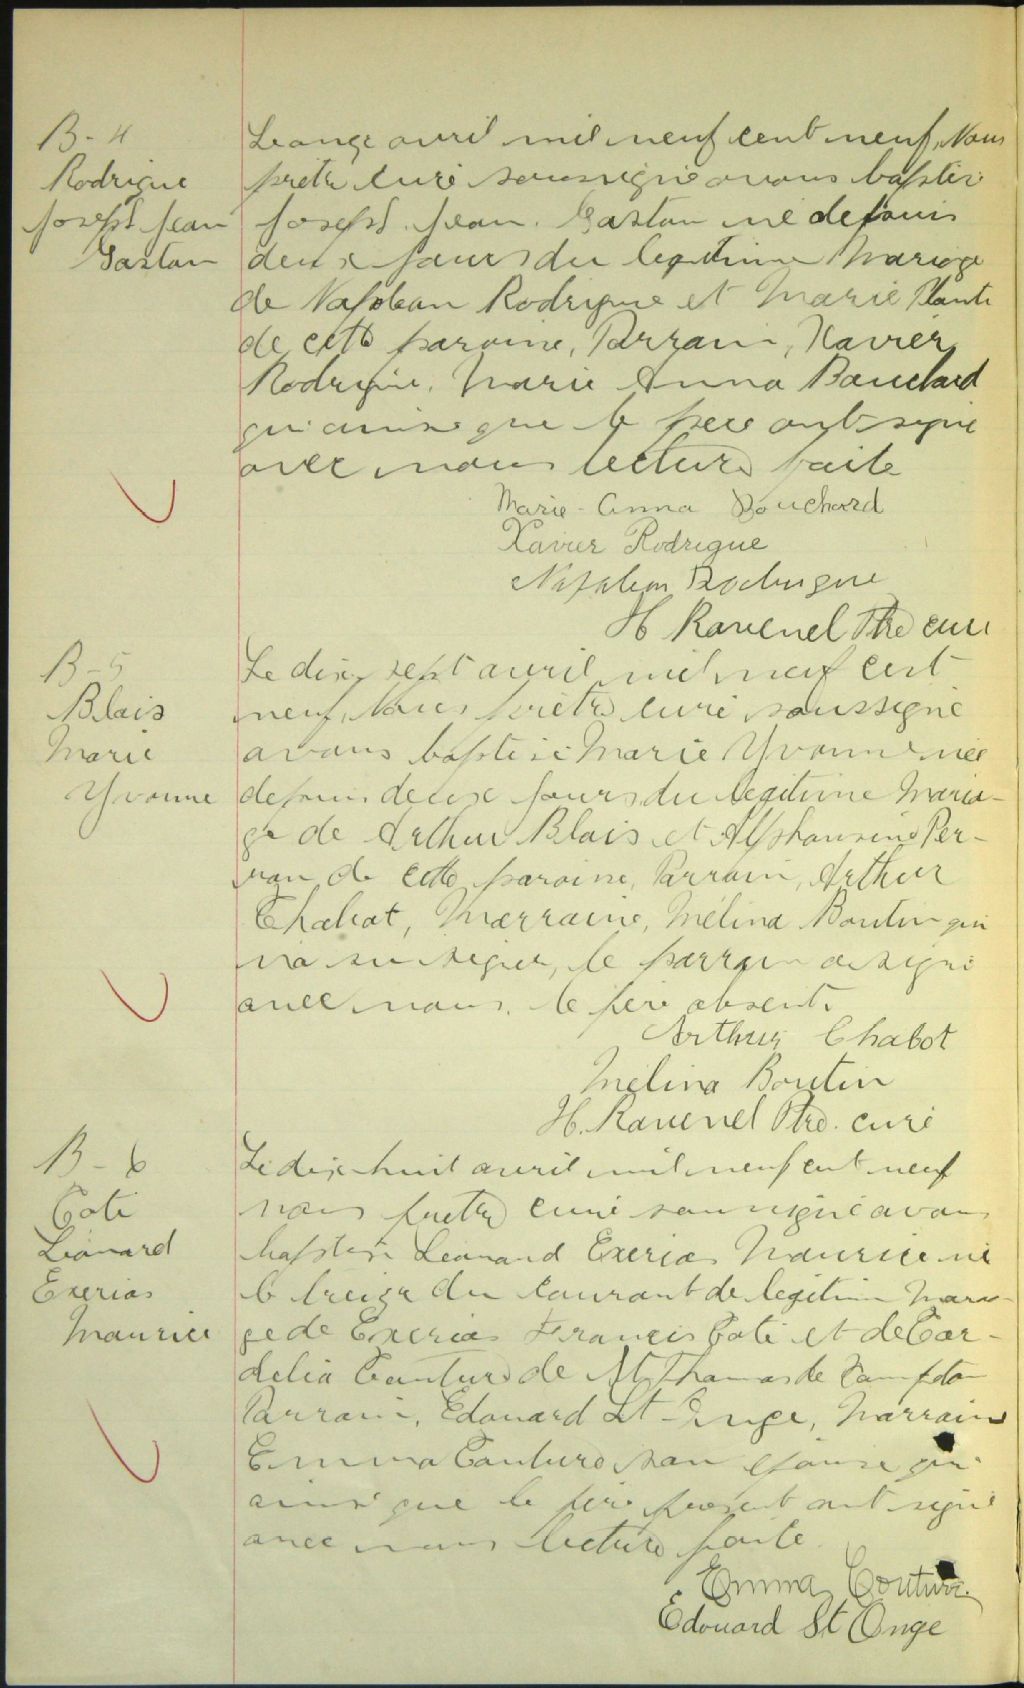 B-4
Rodrigue
Joseph Jean
Gaston
Le onze avril mil neuf cent neuf, Nous
prêtre curé soussigné avons baptisé
Joseph. Jean. Gaston né depuis
deux jours du légitime Mariage
de Napoléon Rodrigue et Marie Plante
de cette paroisse, Parrain, Xavier
Rodrigue, Marie Anna Bouchard
qui ainsi que le père ont signé
avec nous lecture faite
Marie-Anna Bouchard
Xavier Rodrigue
Napoléon Rodrigue
H Ravenel Ptre curé
B-5
Blais
Marie
Yvonne
Le dix-sept avril mil neuf cent
neuf, Nous prêtre curé soussigné
avons baptisé Marie Yvonne née
depuis deux jours du légitime Maria-
ge de Arthur Blais et Alphonsine Per-
ron de cette paroisse, Parrain, Arthur
Chabot, Marraine, Mélina Boutin qui
n'a su signer, le parrain a signé
avec nous. le père absent.
Arthur Chabot
Mélina Boutin
H. Ravenel Ptre. curé
B-6
Coté
Léonard
Exerias
Maurice
Le dix-huit avril mil neuf cent neuf
nous prêtre curé soussigné avons
baptisé Léonard Exerias Maurice né
le treize du courant de légitime Maria-
ge de Exerias Francis Coté et de Cor-
delia Couture de St Thomas de Compton
Parrain, Edouard St-Onge, Marraine
Emma Couture son épouse qui
ainsi que le père présent ont signé
avec nous lecture faite.
Emma Couture
Edouard St Onge